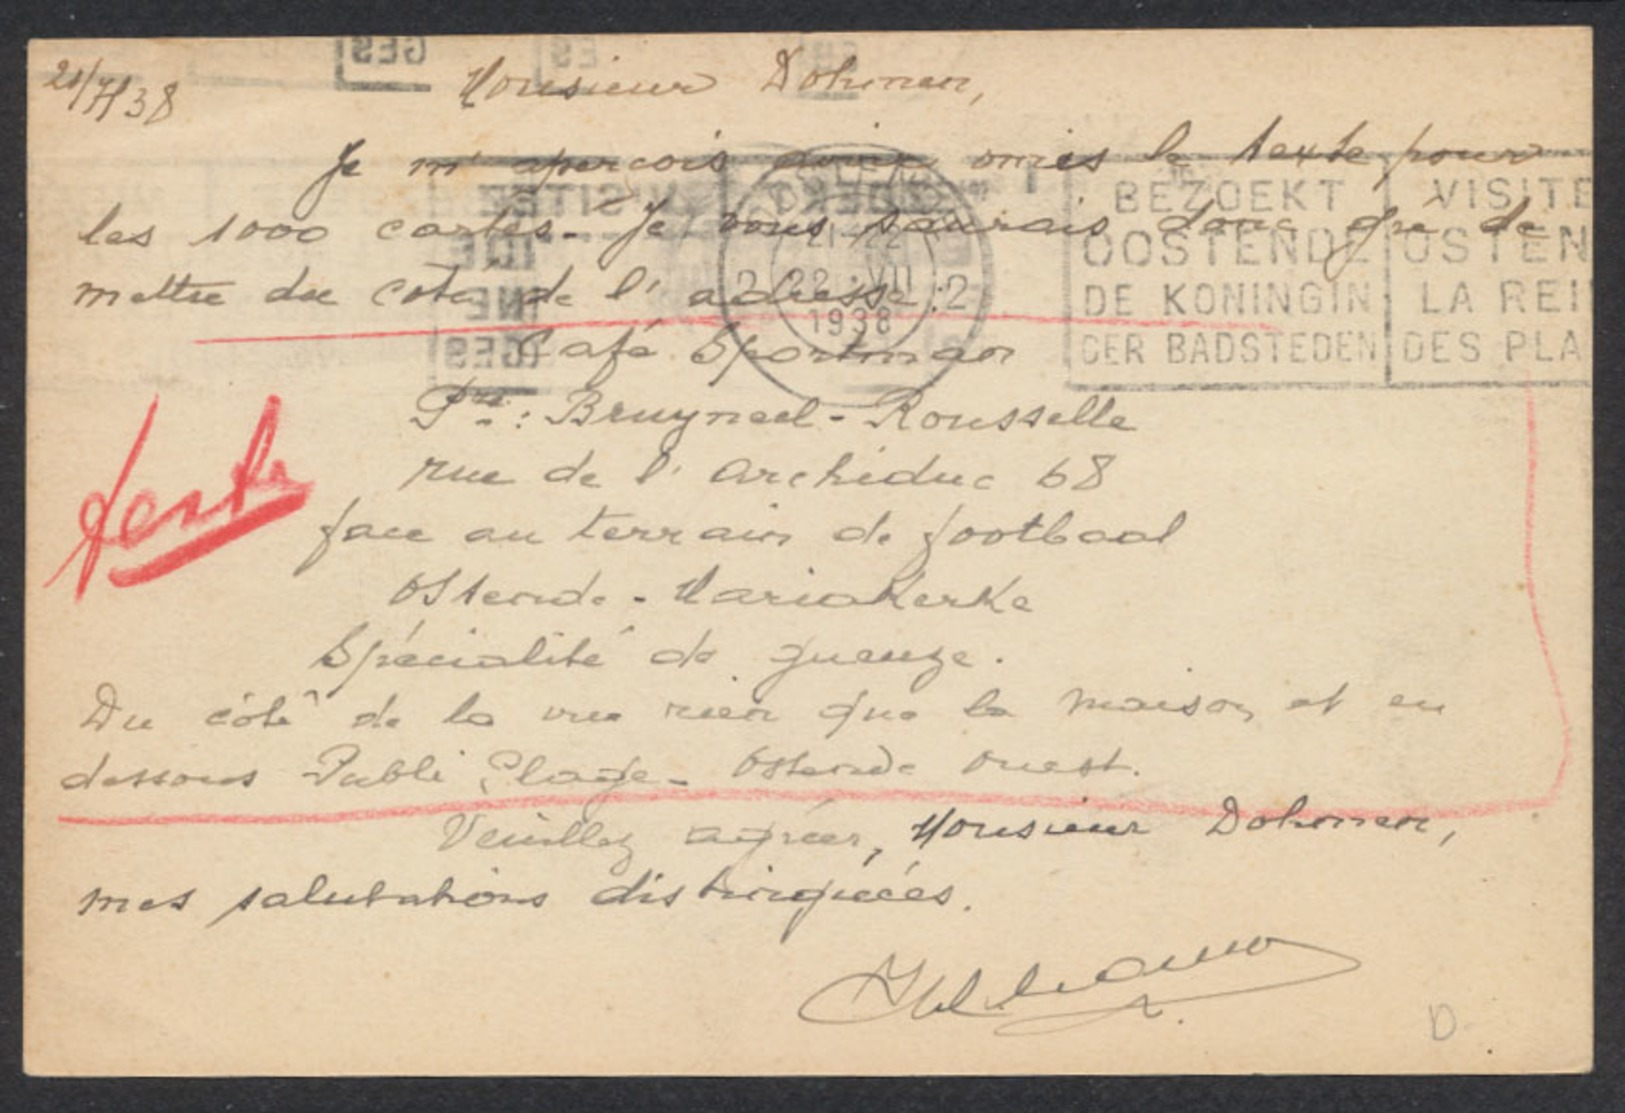 21/7/38
Monsieur Dohmen,
Je m'aperçois avoir omis le texte pour
les 1000 cartes. Je vous saurais donc gré de
mettre du coté de l'adresse:
Café Sportman
Pre: Bruyneel-Rousselle
rue de l'archiduc 68
face au terrain de footbaal
Ostende-Mariakerke
Spécialité de gueuze.
Du côté de la vue rien que la maison et en
dessous Publi Plage - Ostende Ouest.
Veuillez agréer, Monsieur Dohmen,
mes salutations distinguées.
texte
21-22
2 22·VII 2
1938
BEZOEKT
OOSTENDE
DE KONINGIN
DER BADSTEDEN
VISITE
OSTEN
LA REI
DES PLA
D